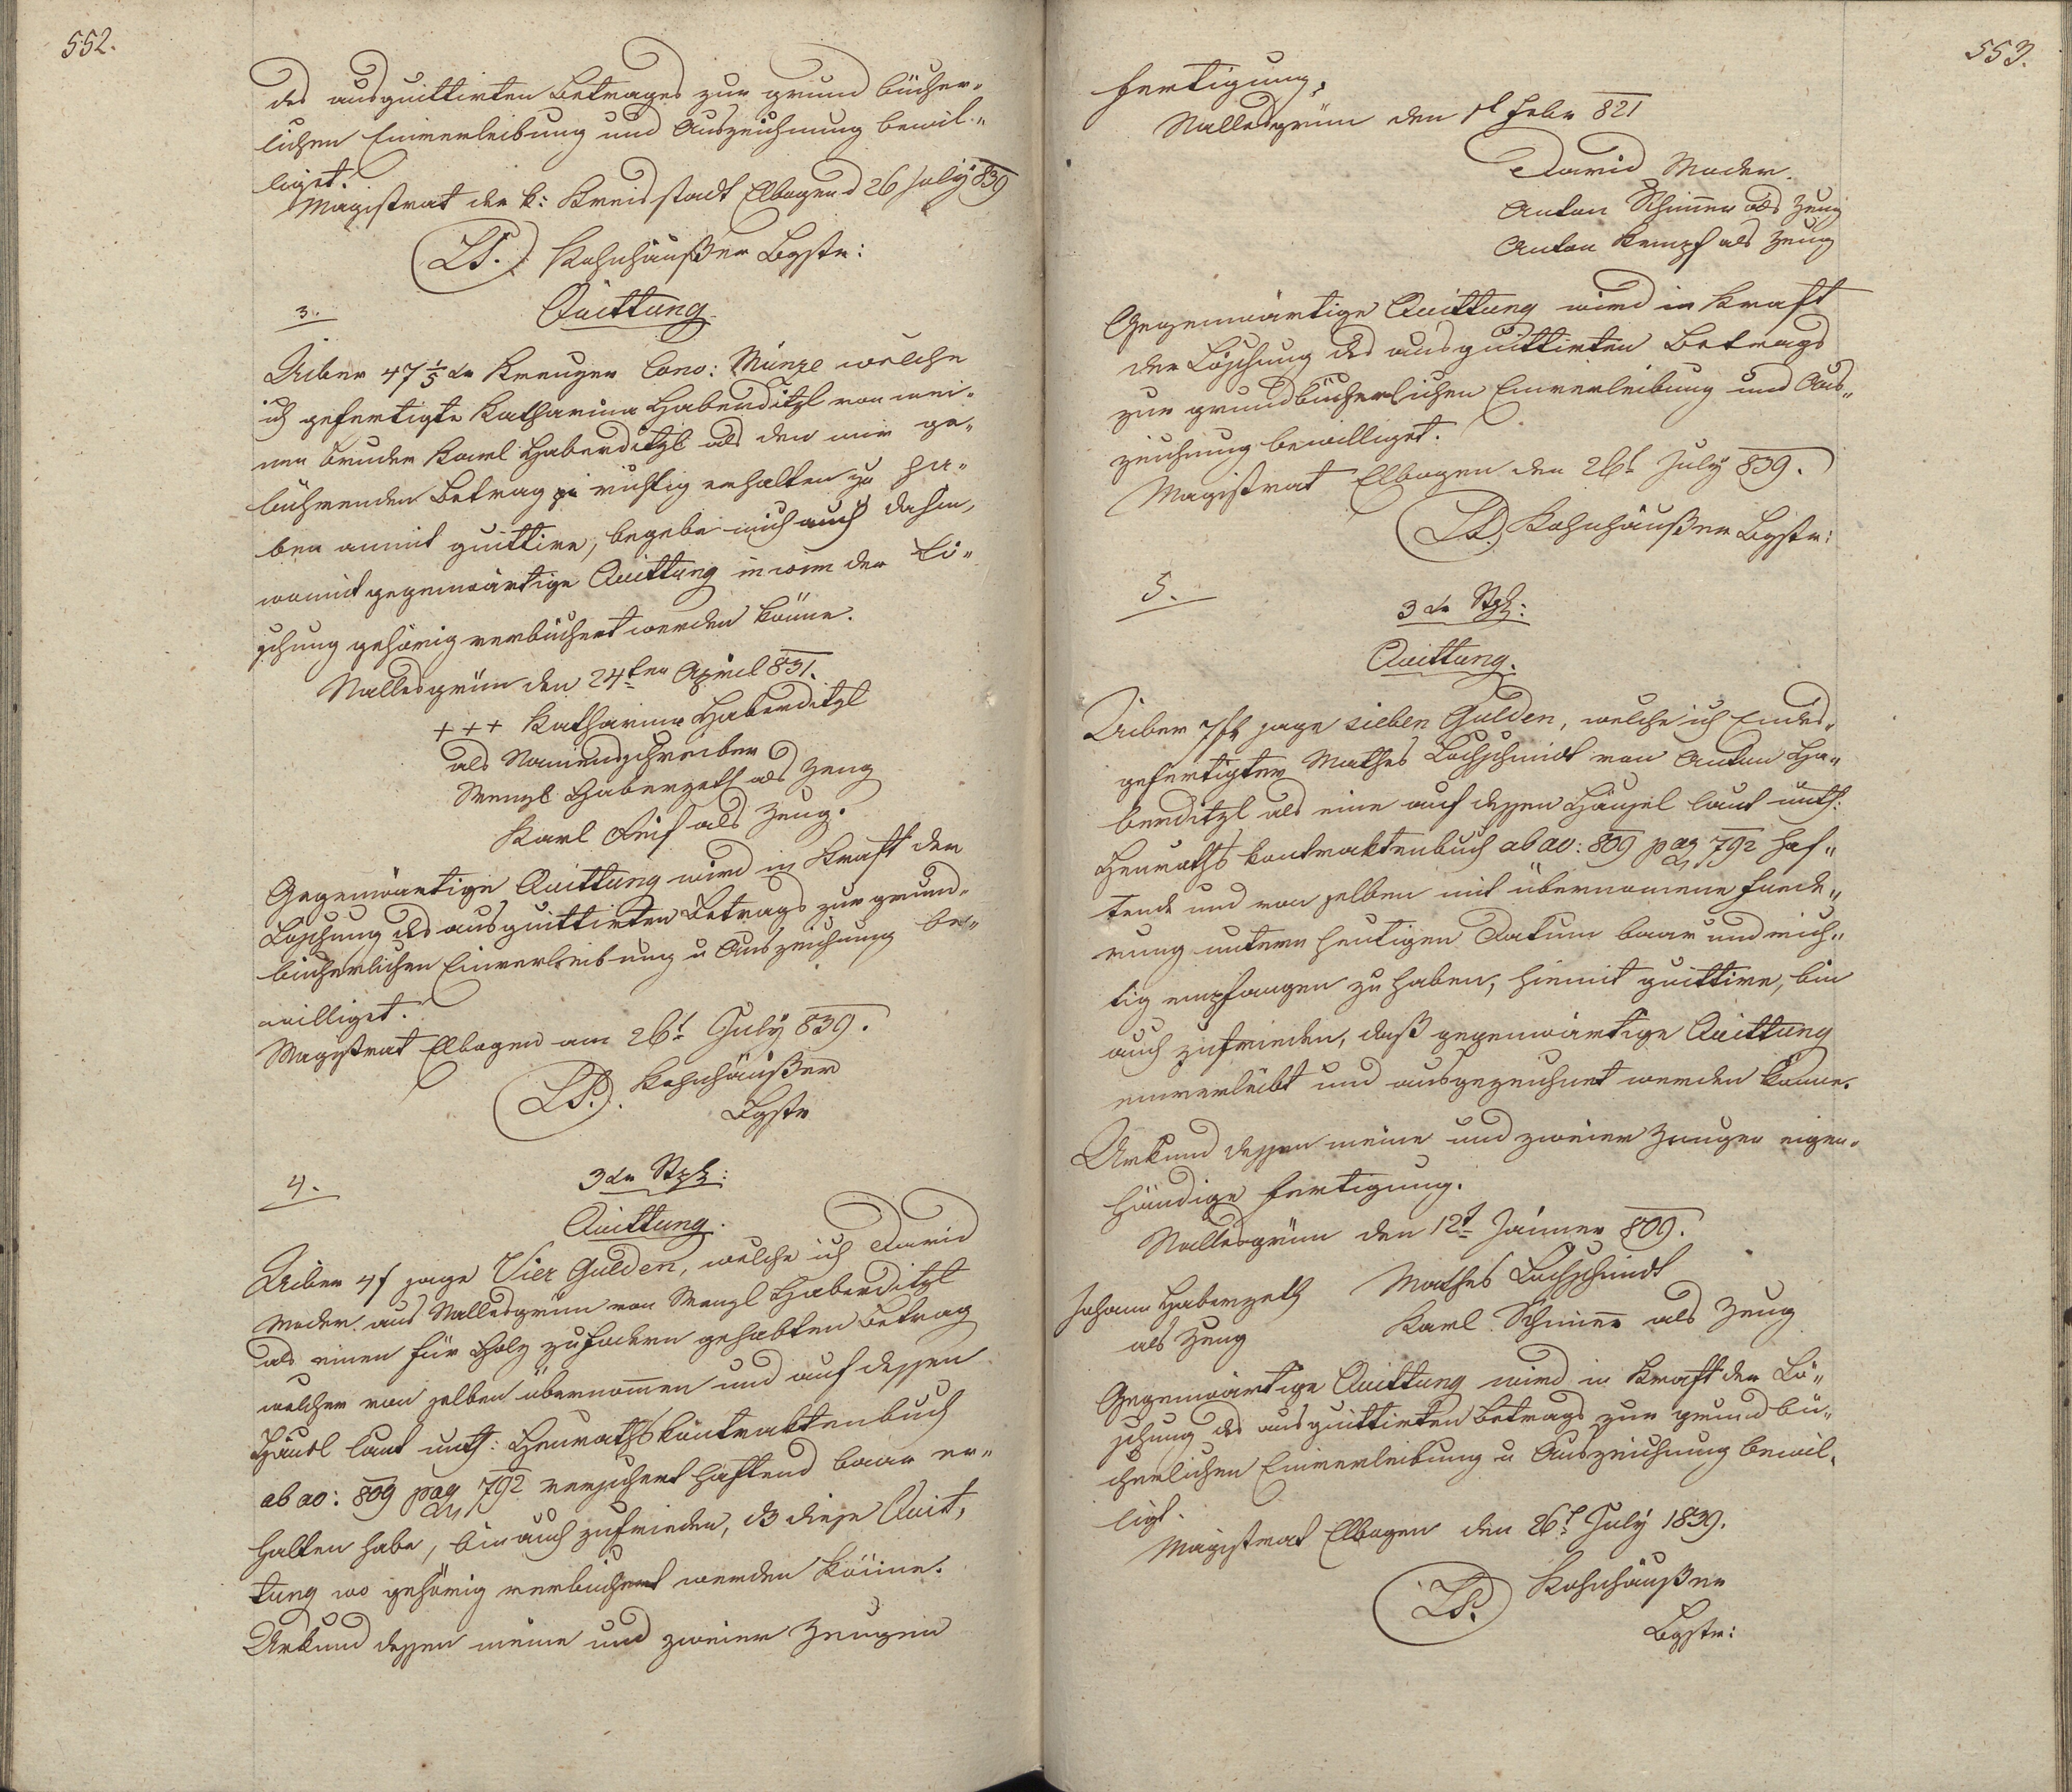 552.
des ausquittirten Betrages zur grund bücher„
lichen Einverleibung und Auszeichnung bewil„
liget.
Magistrat der k: Kreisstadt Elbogen d 26 July 839
LS. Kohnhäußer Bgstr:
3. Quittung
Uiber 47 1/5 xr Kreuzer Conv: Münze welche
ich gefertigte Katharina Haberditzl von mei„
nen Bruder Karl Haberditzl als den mir ge„
bührenden Betrag richtig erhalten zu ha„
ben anmit quittire, begebe mich auch dahin,
womit gegenwärtige Quittung in der Lö„
schung gehörig verbüchert werden könne.
Nallesgrün den 24ten April 831.
+++ Katharina Haberditzl
als Namensschreiber
Wenzl Haberzeth als Zeug
Karl Reif als Zeug.
Gegenwärtige Quittung wird in Kraft der
Löschung des ausquittirten Betrags zur grund„
bücherlichen Einverleibung u Auszeichnung be„
williget.
Magistrat Elbogen am 26t July 839.
LS. Kohnhäußer
Bgstr
4. 3 xr Stpl:
Quittung.
Uiber 4 f sage Vier Gulden, welche ich David
Moder aus Nallesgrün von Wenzl Haberditzl
als einen für Holz zu fodern gehabten Betrag
welcher von selben übernommen und auf dessen
Häusl laut unth: Heuraths kontraktenbuch
ab ao: 809 pag 792 versichert haftend baar er„
halten habe, bin auch zufrieden, dß diese Quit„
tung wo gehörig verbüchert werden könne.
Urkund dessen meine und zweier Zeugen
553.
Fertigung.
Nallesgrün den 1t Febr 821
David Moder.
Anton Schimer als Zeug
Anton Kempf als Zeug
Gegenwärtige Quittung wird in Kraft
der Löschung des ausquittirten Betrags
zur grundbücherlichen Einverleibung und Aus„
zeichnung bewilliget.
Magistrat Elbogen den 26t July 839.
LS. Kohnhäußer Bgstr:
5. 3 xr Stpl:
Quittung.
Uiber 7 fl sage sieben Gulden, welche ich Endes„
gefertigter Mathes Lochschmidt von Anton Ha„
berditzl als eine auf dessen Häusel laut unth:
Heuraths kontraktenbuch ab ao: 809 pag 792 haf„
tende und von selben mit übernomene Forde„
rung untern heutigen Datum baar und rich„
tig empfangen zu haben, hiemit quittire, bin
auch zufrieden, daß gegenwärtige Quittung
einverleibt und ausgezeichnet werden könne.
Urkund dessen meine und zweier Zeugen eigen„
händige Fertigung.
Nallesgrün den 12t Jänner 809.
Johann Haberzeth Mathes Lochschmidt
als Zeug Karl Schimer als Zeug
Gegenwärtige Quittung wird in Kraft der Lö„
schung des ausquittirten Betrags zur grundbü„
cherlichen Einverleibung u Auszeichnung bewil„
ligt.
Magistrat Elbogen den 26t July 1839.
LS. Kohnhäußer
Bgstr: